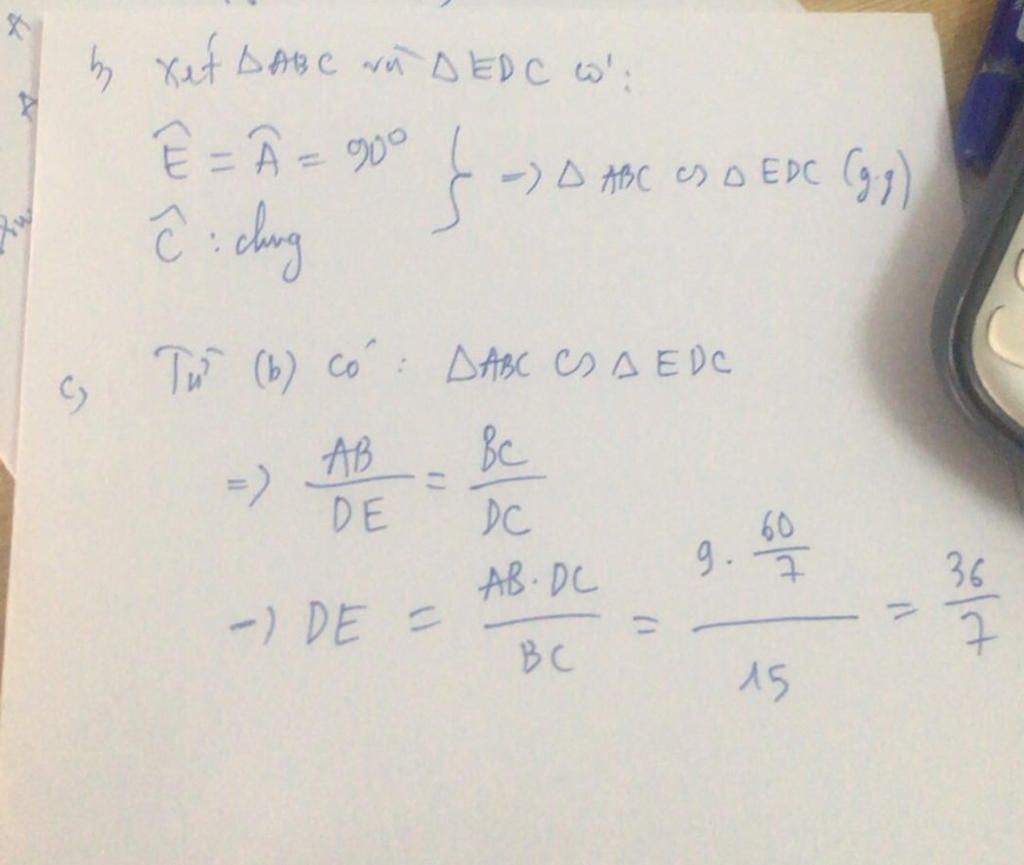 b, Xét ΔABC và ΔEDC có:
Ê = Â = 90° } → ΔABC ∽ ΔEDC (g.g)
Ĉ : chung
c, Từ (b) có : ΔABC ∽ ΔEDC
=> AB/DE = BC/DC
→ DE = AB·DC/BC = (9·60/7)/15 = 36/7